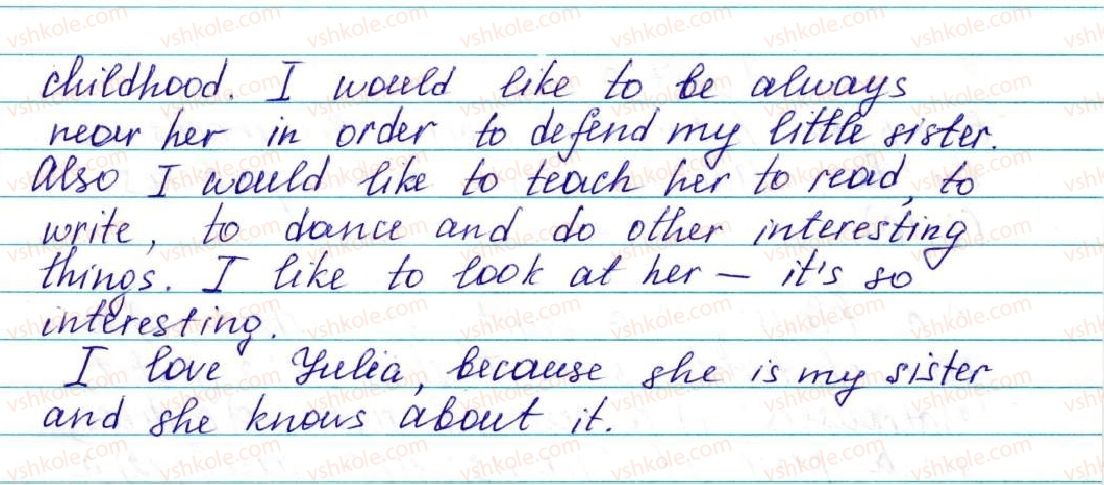 childhood. I would like to be always
near her in order to defend my little sister.
Also I would like to teach her to read, to
write, to dance and do other interesting
things. I like to look at her – it's so
interesting.
I love Yulia, because she is my sister
and she knows about it.